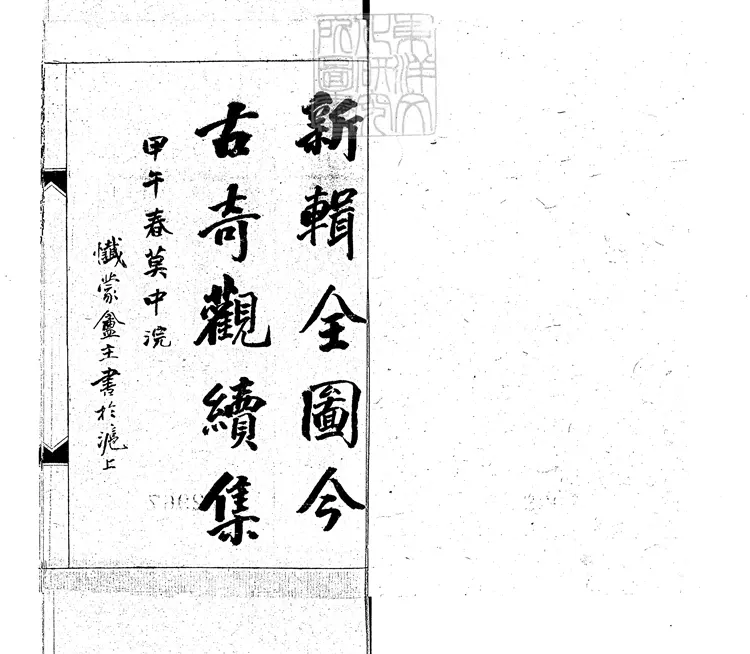 新輯全圖今
古奇觀續集
甲午春莫中浣
懺蒙盦主書於滬上
東洋文
化研究
所圖